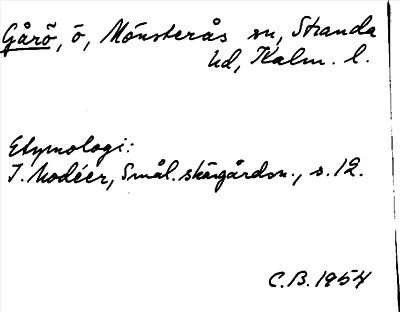 Gårö, ö, Mönsterås sn, Stranda
hd, Kalm. l.
Etymologi:
I. Modéer, Smål. skärgårdsn., s. 12.
C.B. 1954